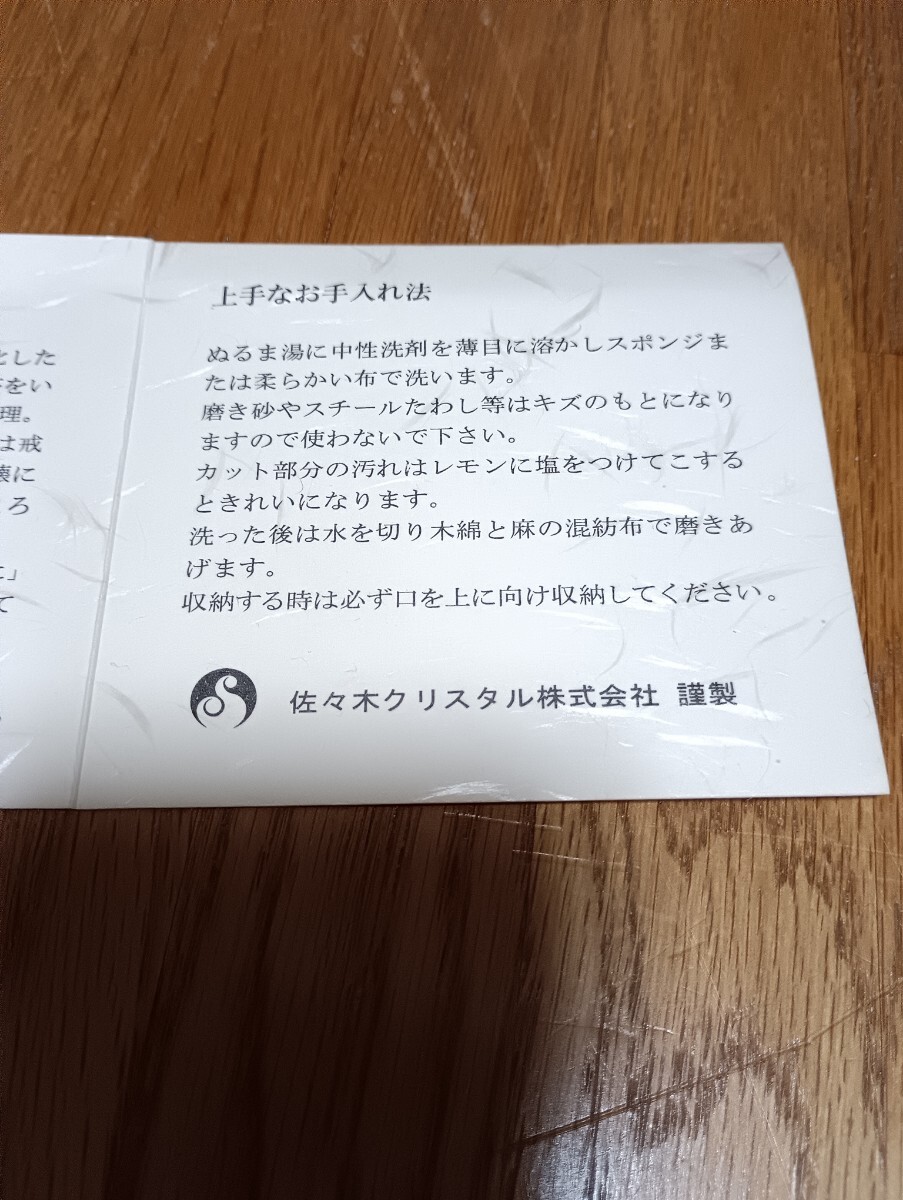 上手なお手入れ法
ぬるま湯に中性洗剤を薄目に溶かしスポンジま
たは柔らかい布で洗います。
磨き砂やスチールたわし等はキズのもとになり
ますので使わないで下さい。
カット部分の汚れはレモンに塩をつけてこする
ときれいになります。
洗った後は水を切り木綿と麻の混紡布で磨きあ
げます。
収納する時は必ず口を上に向け収納してください。
佐々木クリスタル株式会社 謹製
とした
をい
理。
は戒
に
ろ
」
て